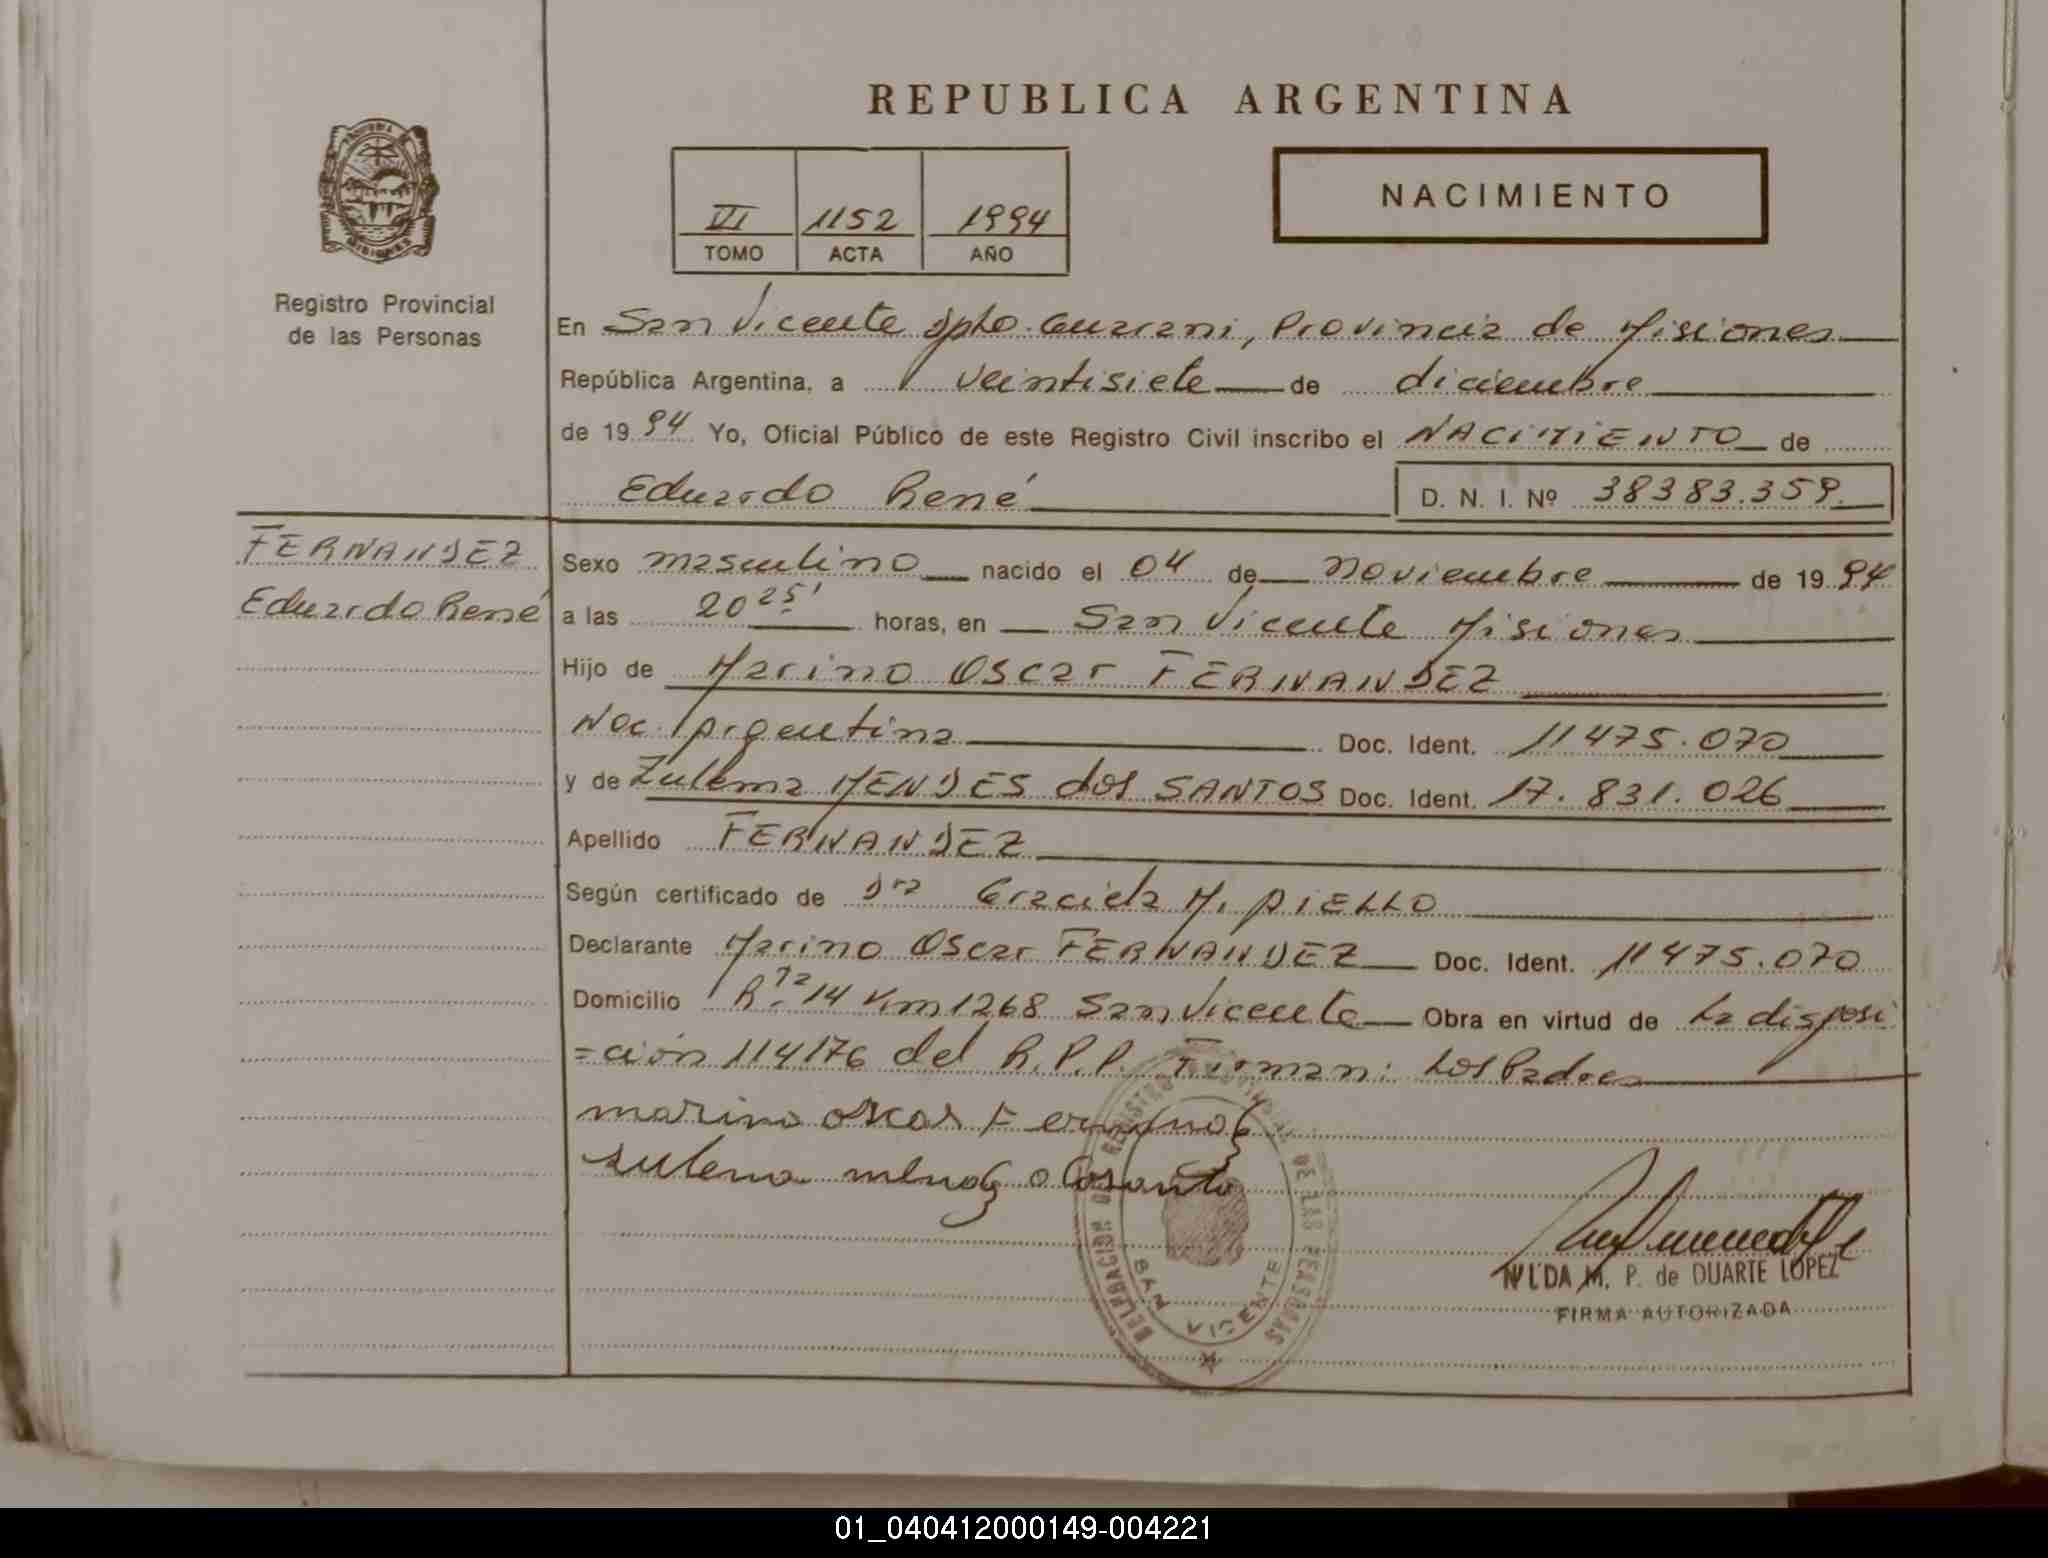 REPUBLICA ARGENTINA
NACIMIENTO
VI 1152 1994
TOMO ACTA AÑO
Registro Provincial
de las Personas
En San Vicente Dpto. Guarani, Provincia de Misiones
República Argentina, a veintisiete de diciembre
de 1994 Yo, Oficial Público de este Registro Civil inscribo el NACIMIENTO de
Eduardo René D. N. I. Nº 38383.359.
FERNANDEZ
Eduardo René
Sexo masculino nacido el 04 de Noviembre de 1994
a las 20 25' horas, en San Vicente Misiones
Hijo de Marino Oscar FERNANDEZ
Nac. Argentina Doc. Ident. 11475.070
y de Zulema MENDES dos SANTOS Doc. Ident. 17.831.026
Apellido FERNANDEZ
Según certificado de Dra Graciela M. AIELLO
Declarante Marino Oscar FERNANDEZ Doc. Ident. 11475.070
Domicilio Rta 14 Km 1268 San Vicente Obra en virtud de La disposi
=ción 114176 del R.P.P. Firman: Los Padres
marino oscar Fernandez
zulema
DELEGACION REGISTRO DE LAS PERSONAS
SAN VICENTE
NILDA M. P. de DUARTE LOPEZ
FIRMA AUTORIZADA
01_040412000149-004221